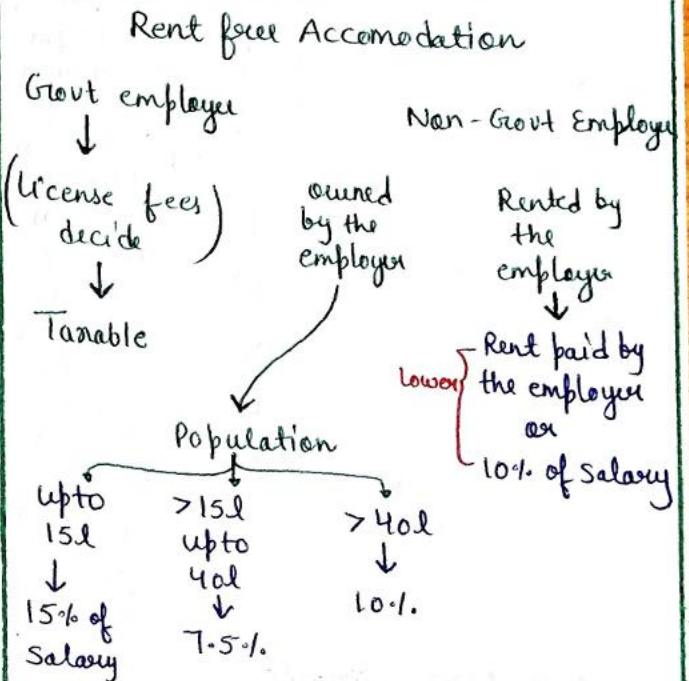 Rent free Accomodation
Govt employer
↓
(License fees
decide)
↓
Taxable
Non-Govt Employe
owned
by the
employer
Rented by
the
employer
↓
Lower
Rent paid by
the employer
or
10% of Salary
Population
upto
15l
↓
15% of
Salary
>15l
upto
40l
↓
7.5%.
>40l
↓
10%.